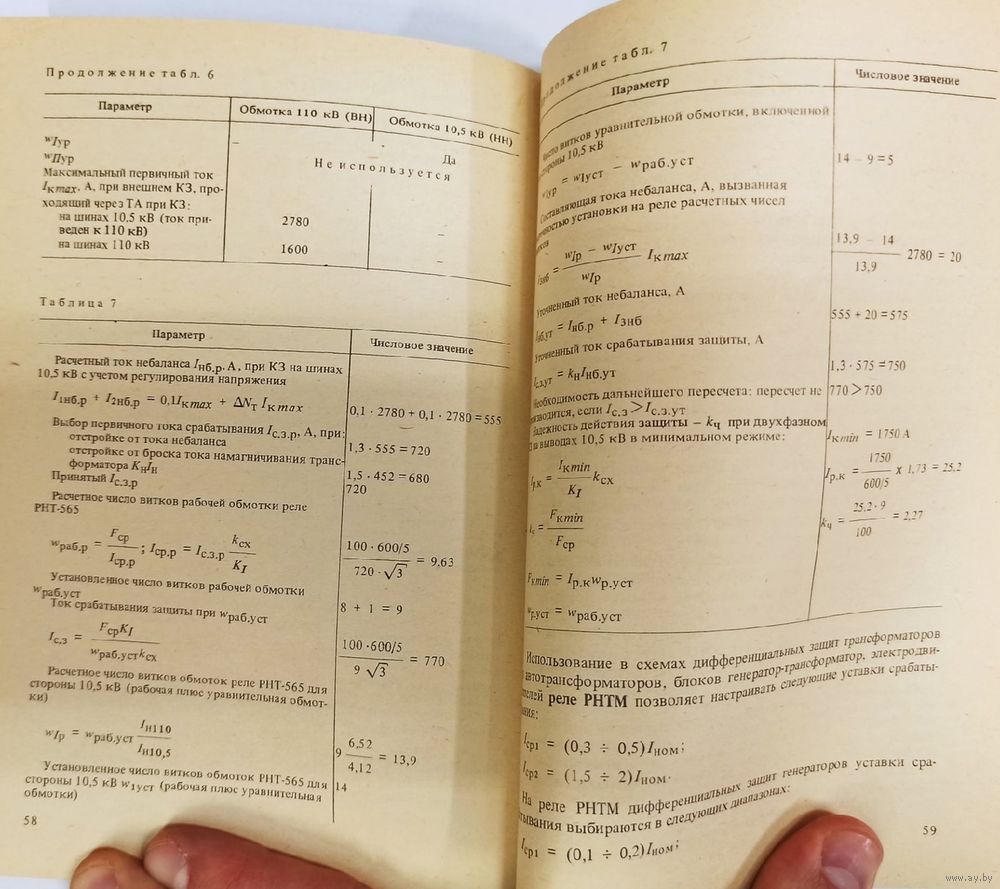 Продолжение табл. 6
Параметр Обмотка 110 кВ (ВН) Обмотка 10,5 кВ (НН)
wIур – Да
wIIур Не используется
Максимальный первичный ток
Iк max, А, при внешнем КЗ, про-
ходящий через ТА при КЗ:
на шинах 10,5 кВ (ток при- 2780 –
веден к 110 кВ)
на шинах 110 кВ 1600 –
Таблица 7
Параметр Числовое значение
Расчетный ток небаланса Iнб.р, А, при КЗ на шинах
10,5 кВ с учетом регулирования напряжения
I1нб.р + I2нб.р = 0,1Iк max + ΔNт Iк max 0,1 · 2780 + 0,1 · 2780 = 555
Выбор первичного тока срабатывания Iс.з.р, А, при:
отстройке от тока небаланса 1,3 · 555 = 720
отстройке от броска тока намагничивания транс-
форматора KнIн 1,5 · 452 = 680
Принятый Iс.з.р 720
Расчетное число витков рабочей обмотки реле
РНТ-565
wраб.р = Fср / Iср.р ; Iср.р = Iс.з.р kсх / KI 100 · 600/5 / 720 · √3 = 9,63
Установленное число витков рабочей обмотки
wраб.уст 8 + 1 = 9
Ток срабатывания защиты при wраб.уст
Iс.з = FсрKI / wраб.уст kсх 100 · 600/5 / 9 √3 = 770
Расчетное число витков обмоток реле РНТ-565 для
стороны 10,5 кВ (рабочая плюс уравнительная обмот-
ки)
wIр = wраб.уст Iн110 / Iн10,5 9 6,52 / 4,12 = 13,9
Установленное число витков обмоток РНТ-565 для 14
стороны 10,5 кВ w1уст (рабочая плюс уравнительная
обмотки)
58
табл. 7
Параметр Числовое значение
витков уравнительной обмотки, включенной
10,5 кВ
= wIуст – wраб.уст 14 – 9 = 5
тока небаланса, А, вызванная
установки на реле расчетных чисел
= wIр – wIуст / wIр Iк max 13,9 – 14 / 13,9 2780 = 20
Уточненный ток небаланса, А
Iнб.ут = Iнб.р + I3нб 555 + 20 = 575
Уточненный ток срабатывания защиты, А
Iс.з.ут = kнIнб.ут 1,3 · 575 = 750
Необходимость дальнейшего пересчета: пересчет не 770 > 750
если Iс.з > Iс.з.ут
Надежность действия защиты – kч при двухфазном
на выводах 10,5 кВ в минимальном режиме: Iк min = 1750 А
Iр.к = Iк min / KI kсх Iр.к = 1750 / 600/5 х 1,73 = 25,2
= Fк min / Fср kч = 25,2 · 9 / 100 = 2,27
Fк min = Iр.к wр.уст
wр.уст = wраб.уст
Использование в схемах дифференциальных защит трансформаторов
автотрансформаторов, блоков генератор-трансформатор, электродви-
реле РНТМ позволяет настраивать следующие уставки срабаты-
Iср1 = (0,3 ÷ 0,5) Iном;
Iср2 = (1,5 ÷ 2) Iном.
На реле РНТМ дифференциальных защит генераторов уставки сра-
выбираются в следующих диапазонах:
Iср1 = (0,1 ÷ 0,2) Iном;
59
www.ay.by